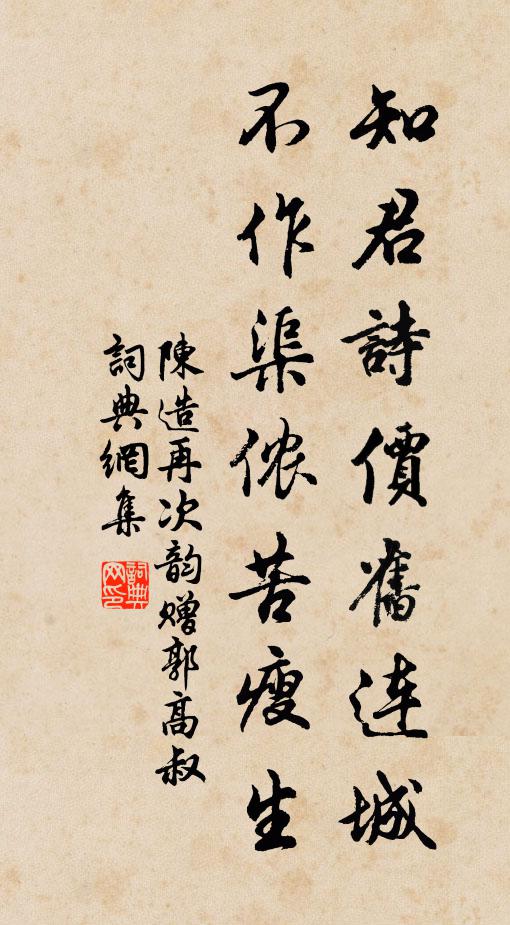 知君詩價舊連城
不作渠侬苦瘦生
陳造再次韵赠郭高叔
詞典網集
詞典网印